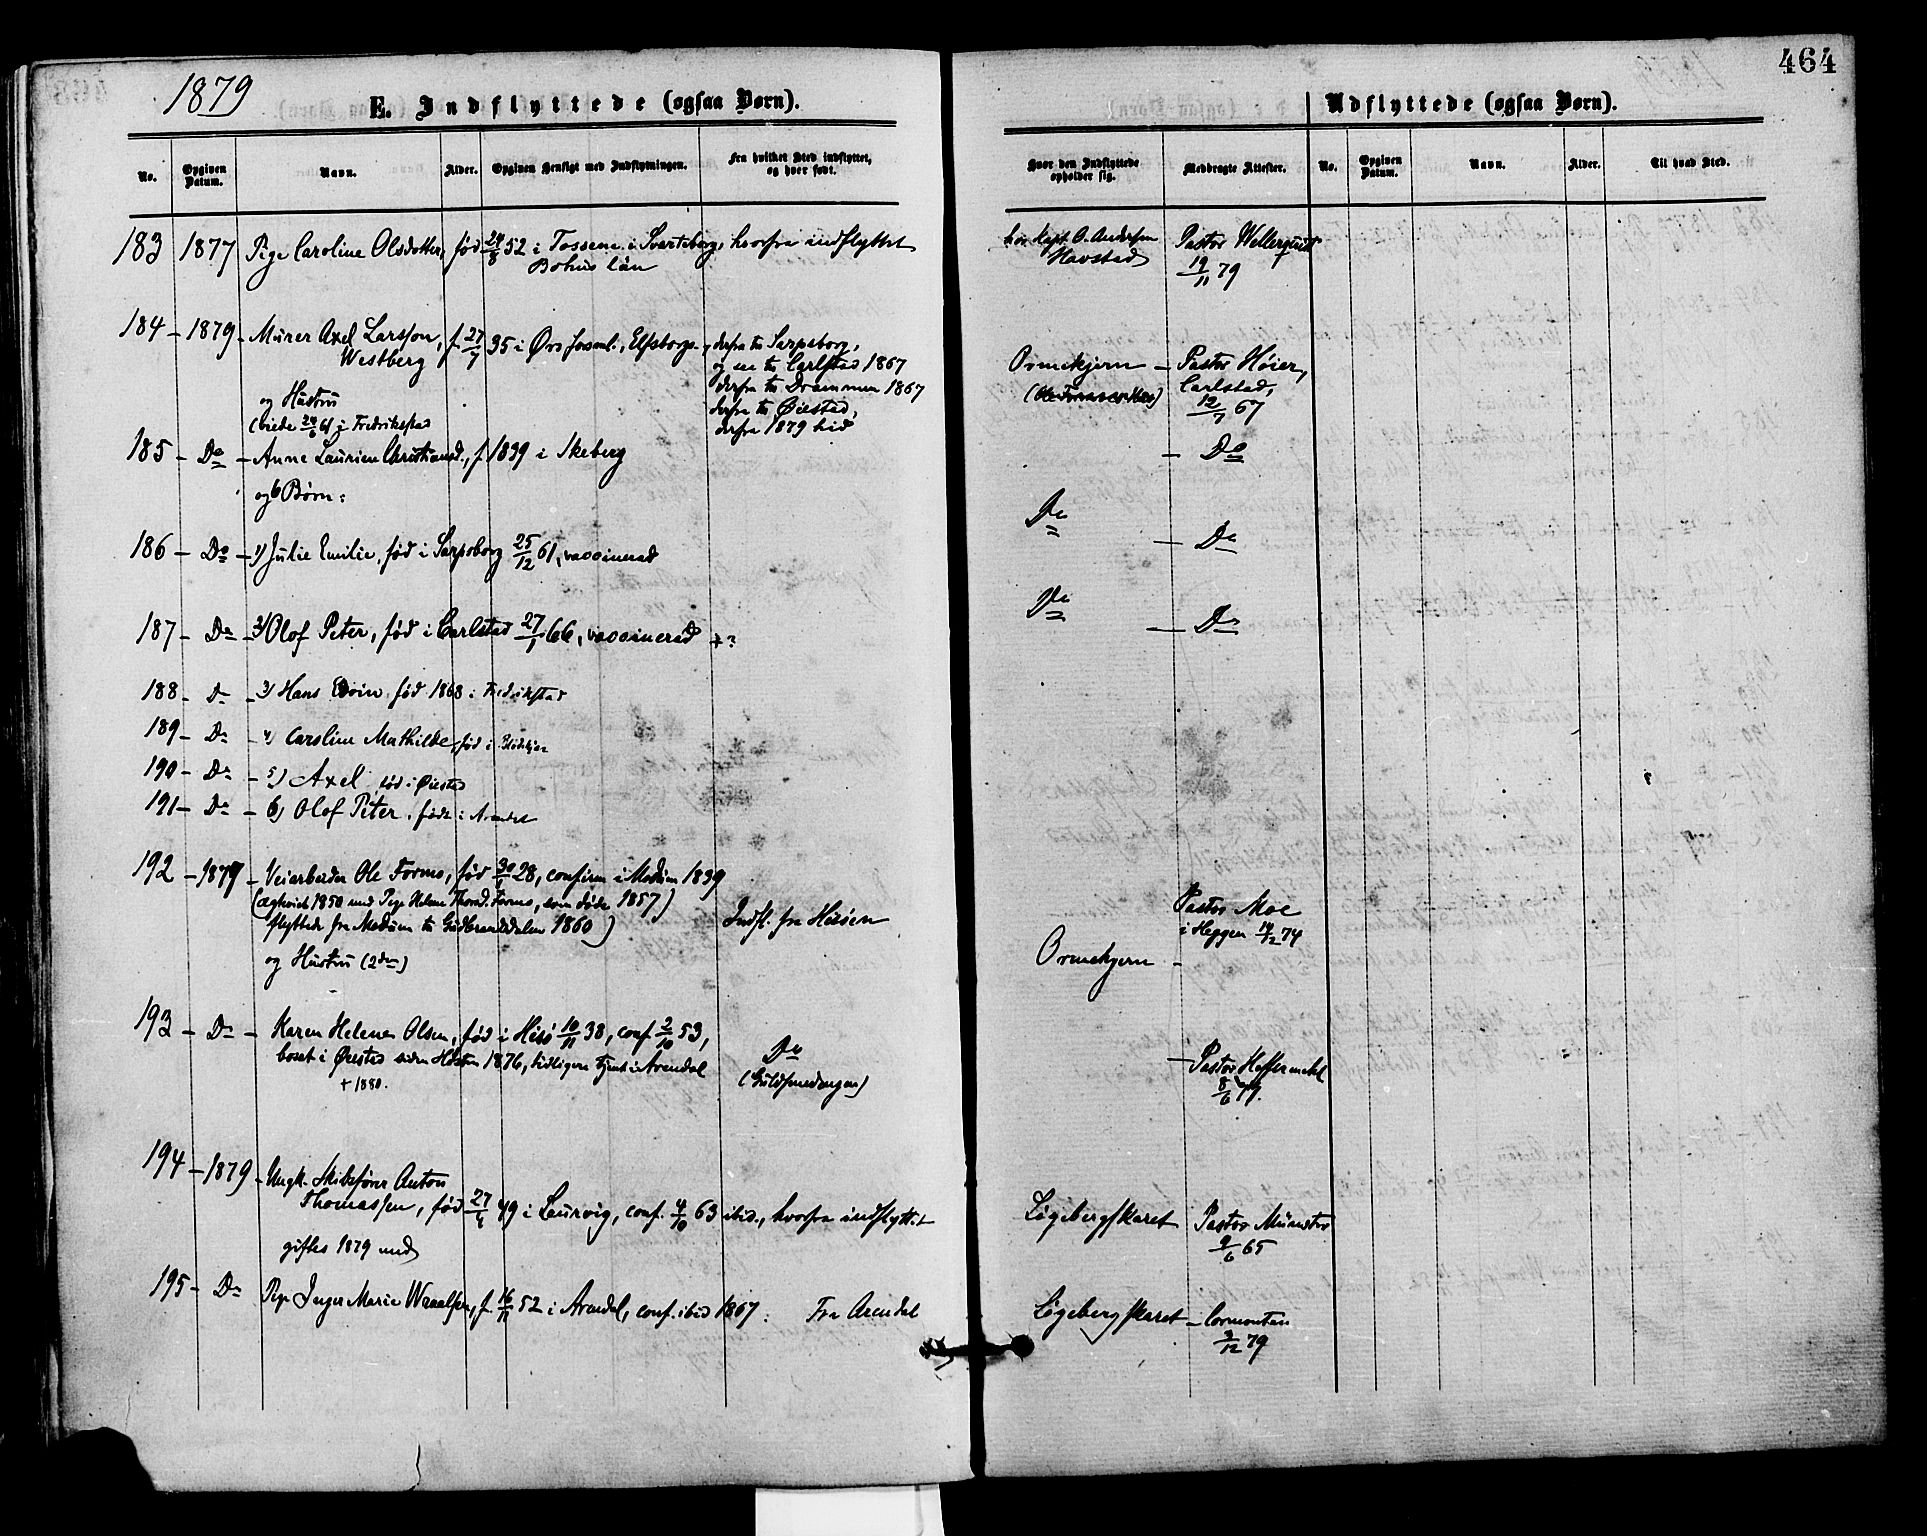 464
1879
E. Indflyttede (ogsaa Børn).
Udflyttede (ogsaa Børn).
No.
Opgiven Datum.
Navn.
Alder.
Opgiven Hensigt med Indflytningen.
Fra hvilket Sted indflyttet, og hvor født.
Hvor den Indflyttede opholder sig.
Medbragte Attester.
No.
Opgiven Datum.
Navn.
Alder.
Til hvad Sted.
183 1877 Pige Caroline Olsdotter, fød 24/8 52 i Tossene i Svarteborg, hvorfra indflyttet
Bohus län
hos Kapt. O. Andersen
Havstad
Pastor
19/11 79
184 - 1879 - Murer Axel Larsson, f. 27/7 35 i Ørs Sosml., Elfsborgs
Westberg
derfra til Sarpsborg,
og saa til Carlstad 1867
derfra til Drammen 1867
derfra til Øiestad,
derfra 1879 hid
Ormekjern - Pastor Höier,
Carlstad,
12/7 67
og Hustru
(viede 24/6 61 i Fredrikstad
185 - Do - Anne Laurien Christiansd., f. 1839 i Skeberg
- Do
og 6 Børn:
186 - Do - 1) Julie Emilie, fød i Sarpsborg 25/12 61, vaccinerad
Do - Do
187 - Do - 2) Olof Peter, fød i Carlstad 27/1 66, vaccinerad +?
Do - Do
188 - Do - 3) Hans Edvin, fød 1868 i Fredrikstad
189 - Do - 4) Caroline Mathilde, fød i
190 - Do - 5) Axel, fød i Øiestad
191 - Do - 6) Olof Peter, født i Arendal
192 - 1879 - Veiarbeider Ole Formo, fød 30/1 28, confirm i Modum 1839
(ægteviet 1850 med Pige Helene Thorsd. Formo, som døde 1857)
flyttede fra Modum til Gudbrandsdalen 1860)
og Hustru (2den)
Indfl. fra Hisöen
Ormekjern -
Pastor Moe
i Heggen 14/12 74
193 - Do - Karen Helene Olsen, fød i Hisö 10/11 38, conf. 2/10 53,
boset i Øiestad siden Høsten 1876, tidligere tjent i Arendal
+ 1880.
Do
(Guldsmedengen)
- Pastor Heffermehl
8/6 79.
194 - 1879 - Ungk. Skibsfører Anton
Thomassen, fød 27/4 49 i Laurvig, conf. 4/10 63 ibid., hvorfra indflyttet
Løgebergskaret Pastor Münster
9/6 65
giftes 1879 med
195 - Do Pige Inger Marie Wraalsen, f. 16/11 52 i Arendal, conf. ibid 1867: Fra Arendal
Løgebergskaret - Cormontan
3/12 79